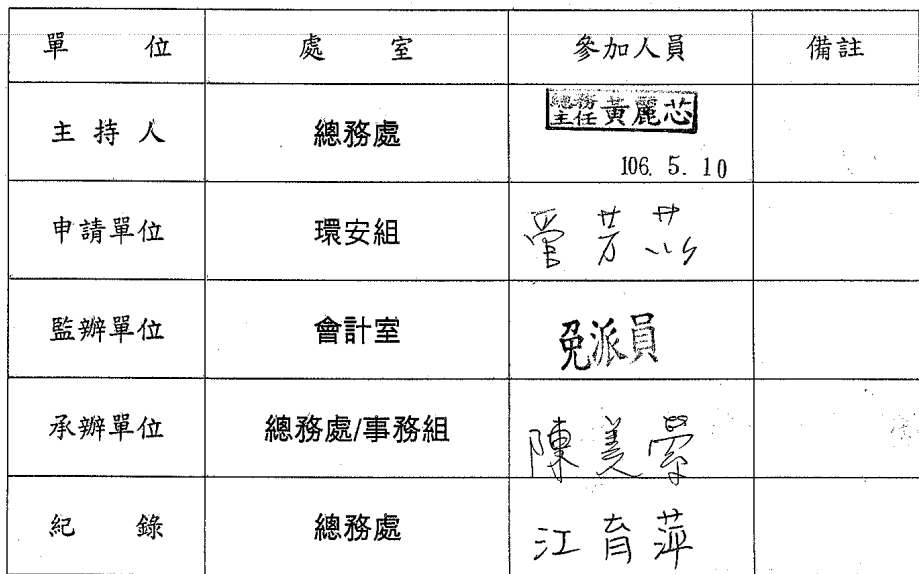 單 位 處 室 參加人員 備註
主持人 總務處 總務主任 黃麗芯
106. 5. 10
申請單位 環安組
監辦單位 會計室 免派員
承辦單位 總務處/事務組 陳美
紀 錄 總務處 江育萍